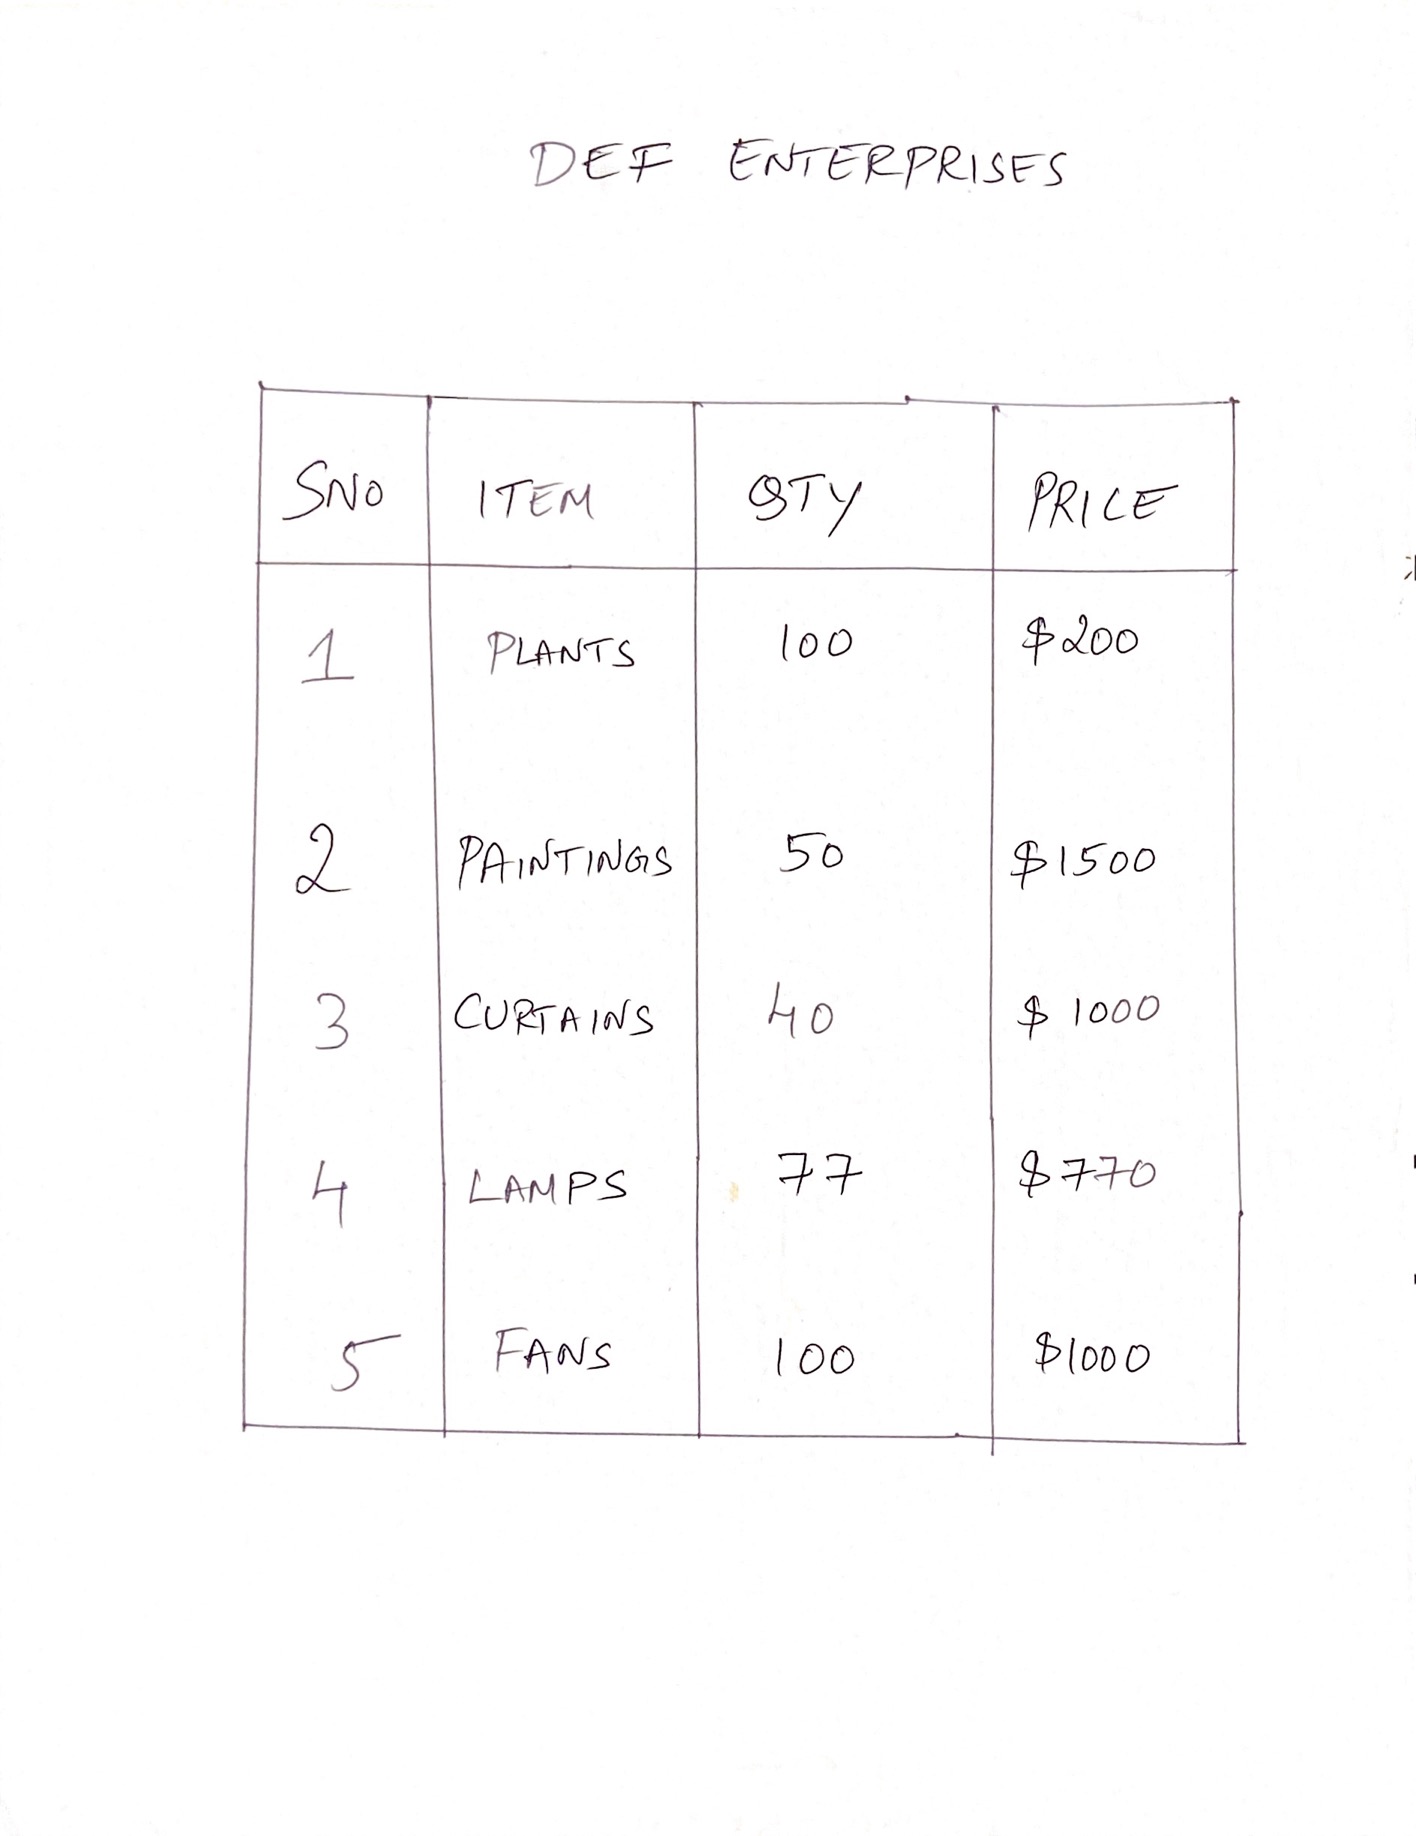 DEF ENTERPRISES
SNO ITEM QTY PRICE
1 PLANTS 100 $200
2 PAINTINGS 50 $1500
3 CURTAINS 40 $ 1000
4 LAMPS 77 $770
5 FANS 100 $1000